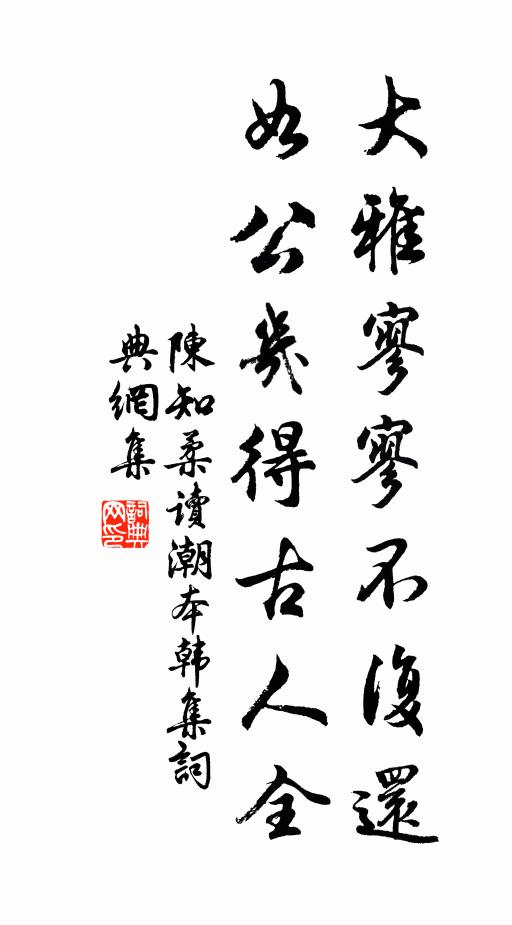 大雅寥寥不復還
如公幾得古人全
陳知柔讀潮本韩集詞
典網集
詞典网印